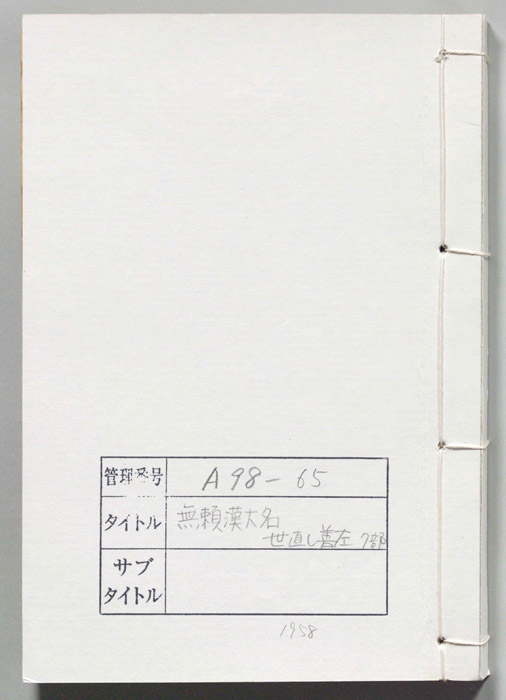 管理番号 A98-65
タイトル 無頼漢大名
世直し善左 7部
サブ
タイトル
1958